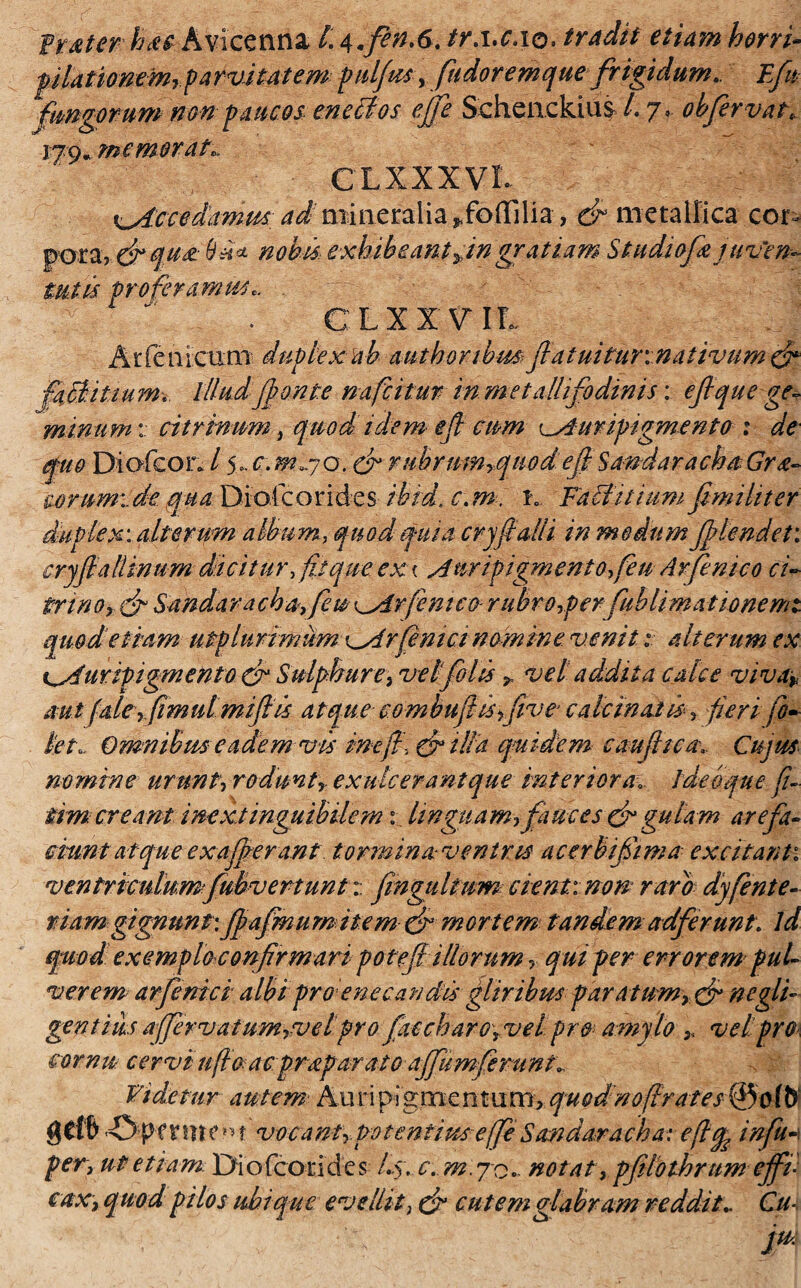 Præter hæc Avicenna l. 4. fen. 6. tr. 1. c. 10. tradit etiam horri-
pilationem, parvitatem pulsus, sudoremque frigidum. Esu
fungorum non paucos enectos esse Schenckius l. 7. observat.
179. memorat.
CLXXXVI.
Accedamus ad mineralia, fossilia, & metallica cor-
pora, & quæ nobis exhibeant, in gratiam Studiosæ juven-
tutis proferamus.
CLXXVII.
Arsenicum duplex ab authoribus statuitur: nativum &
factitium. Illud sponte nascitur in metallifodinis: estque ge-
minum: citrinum, quod idem est cum Auripigmento: de
quo Dioscor. l 5. c. m. 70. & rubrum, quod est Sandaracha Græ-
corum: de qua Dioscorides ibid. c. m. 1. Factitium similiter
duplex: alterum album, quod quia crystalli in modum splendet:
crystallinum dicitur, fitque ex Auripigmento, seu Arsenico ci-
trino, & Sandaracha, seu Arsenico rubro, per sublimationem:
quod etiam utplurimùm Arsenici nomine venit: alterum ex
Auripigmento & Sulphure, vel solis, vel addita calce viva,
aut sale, simul mistis atque combustis, sive calcinatis, fieri so-
let. Omnibus eadem vis inest, & illa quidem caustica. Cujus
nomine urunt, rodunt, exulcerantque interiora. Ideóque si-
tim creant inextinguibilem: linguam, fauces & gulam arefa-
ciunt atque exasperant tormina ventris acerbissima excitant:
ventriculum subvertunt: singultum cient: non rarò dysente-
riam gignunt: spasmum item & mortem tandem adferunt. Id
quod exemplo confirmari potest illorum, qui per errorem pul-
verem arsenici albi pro enecandis gliribus paratum, & negli-
gentius asservatum, vel pro saccharo, vel pro amylo, vel pro
cornu cervi usto ac præparato assumserunt.
Videtur autem Auripigmentum, quod nostrates Gold
gelb Operment vocant, potentius esse Sandaracha: estq; insu-
per, ut etiam Dioscorides l. 5. c. m. 70. notat, psilothrum effi-
cax, quod pilos ubique evellit, & cutem glabram reddit. Cu-
ju-